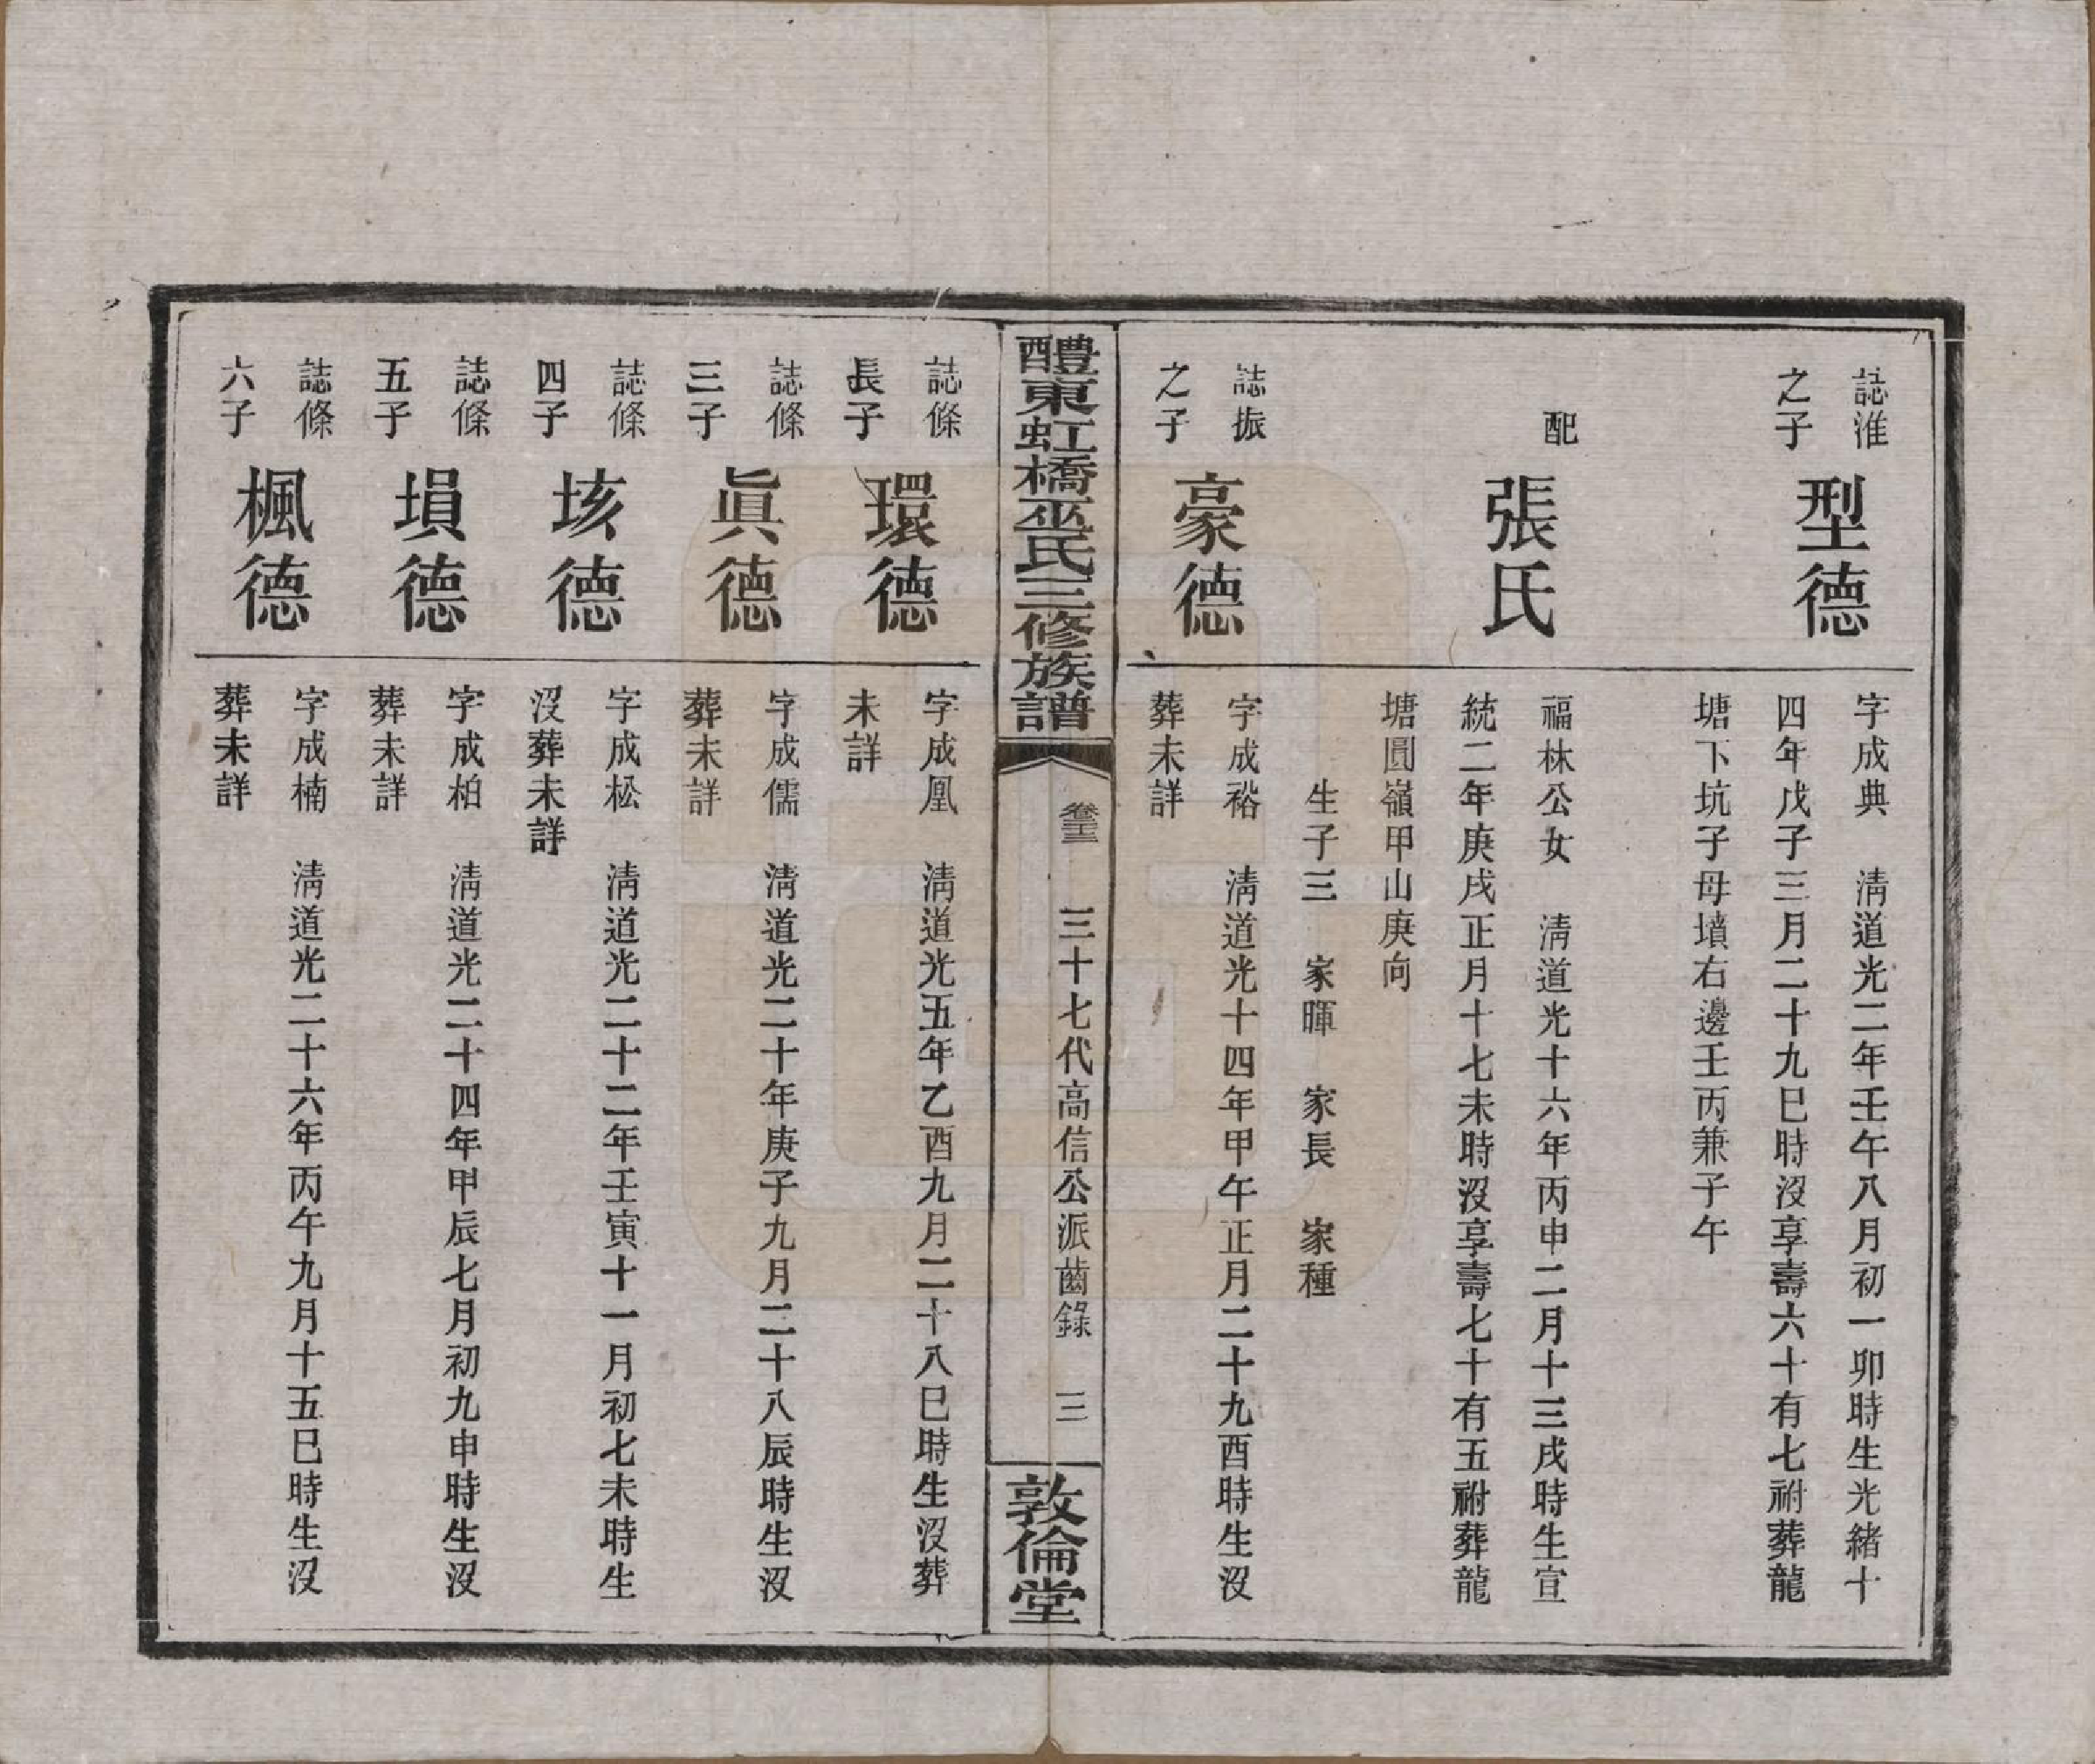 誌淮
之子
型德
字成典　清道光二年壬午八月初一卯時生光緒十
四年戊子三月二十九巳時沒享壽六十有七祔葬龍
塘下坑子母墳右邊壬丙兼子午
配
張氏
福林公女　清道光十六年丙申二月十三戌時生宣
統二年庚戌正月十七未時沒享壽七十有五祔葬龍
塘圓嶺甲山庚向
生子三　家暉　家長　家種
誌振
之子
豪德
字成裕　清道光十四年甲午正月二十九酉時生沒
葬未詳
醴東虹橋巫氏三修族譜
卷三　三十七代高信公派齒錄　三
敦倫堂
誌條
長子
環德
字成凰　清道光五年乙酉九月二十八巳時生沒葬
未詳
誌條
三子
眞德
字成儒　清道光二十年庚子九月二十八辰時生沒
葬未詳
誌條
四子
垓德
字成松　清道光二十二年壬寅十一月初七未時生
沒葬未詳
誌條
五子
塤德
字成柏　清道光二十四年甲辰七月初九申時生沒
葬未詳
誌條
六子
楓德
字成楠　清道光二十六年丙午九月十五巳時生沒
葬未詳